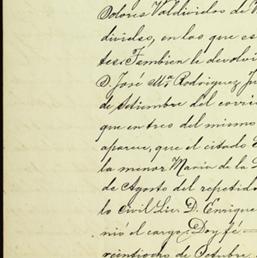 Dolores Valdivides de V
divides, en los que es
tes. Tambien le devolvi
D. José Mª Rodriguez, Ju
de setiembre del corrie
que en tres del mismo
aparece, que el citado E
la menor Maria de la L
de Agosto del repetido
lo civil Lic. D. Enrique
nió el cargo. Doy fé
veintiocho de Octubre